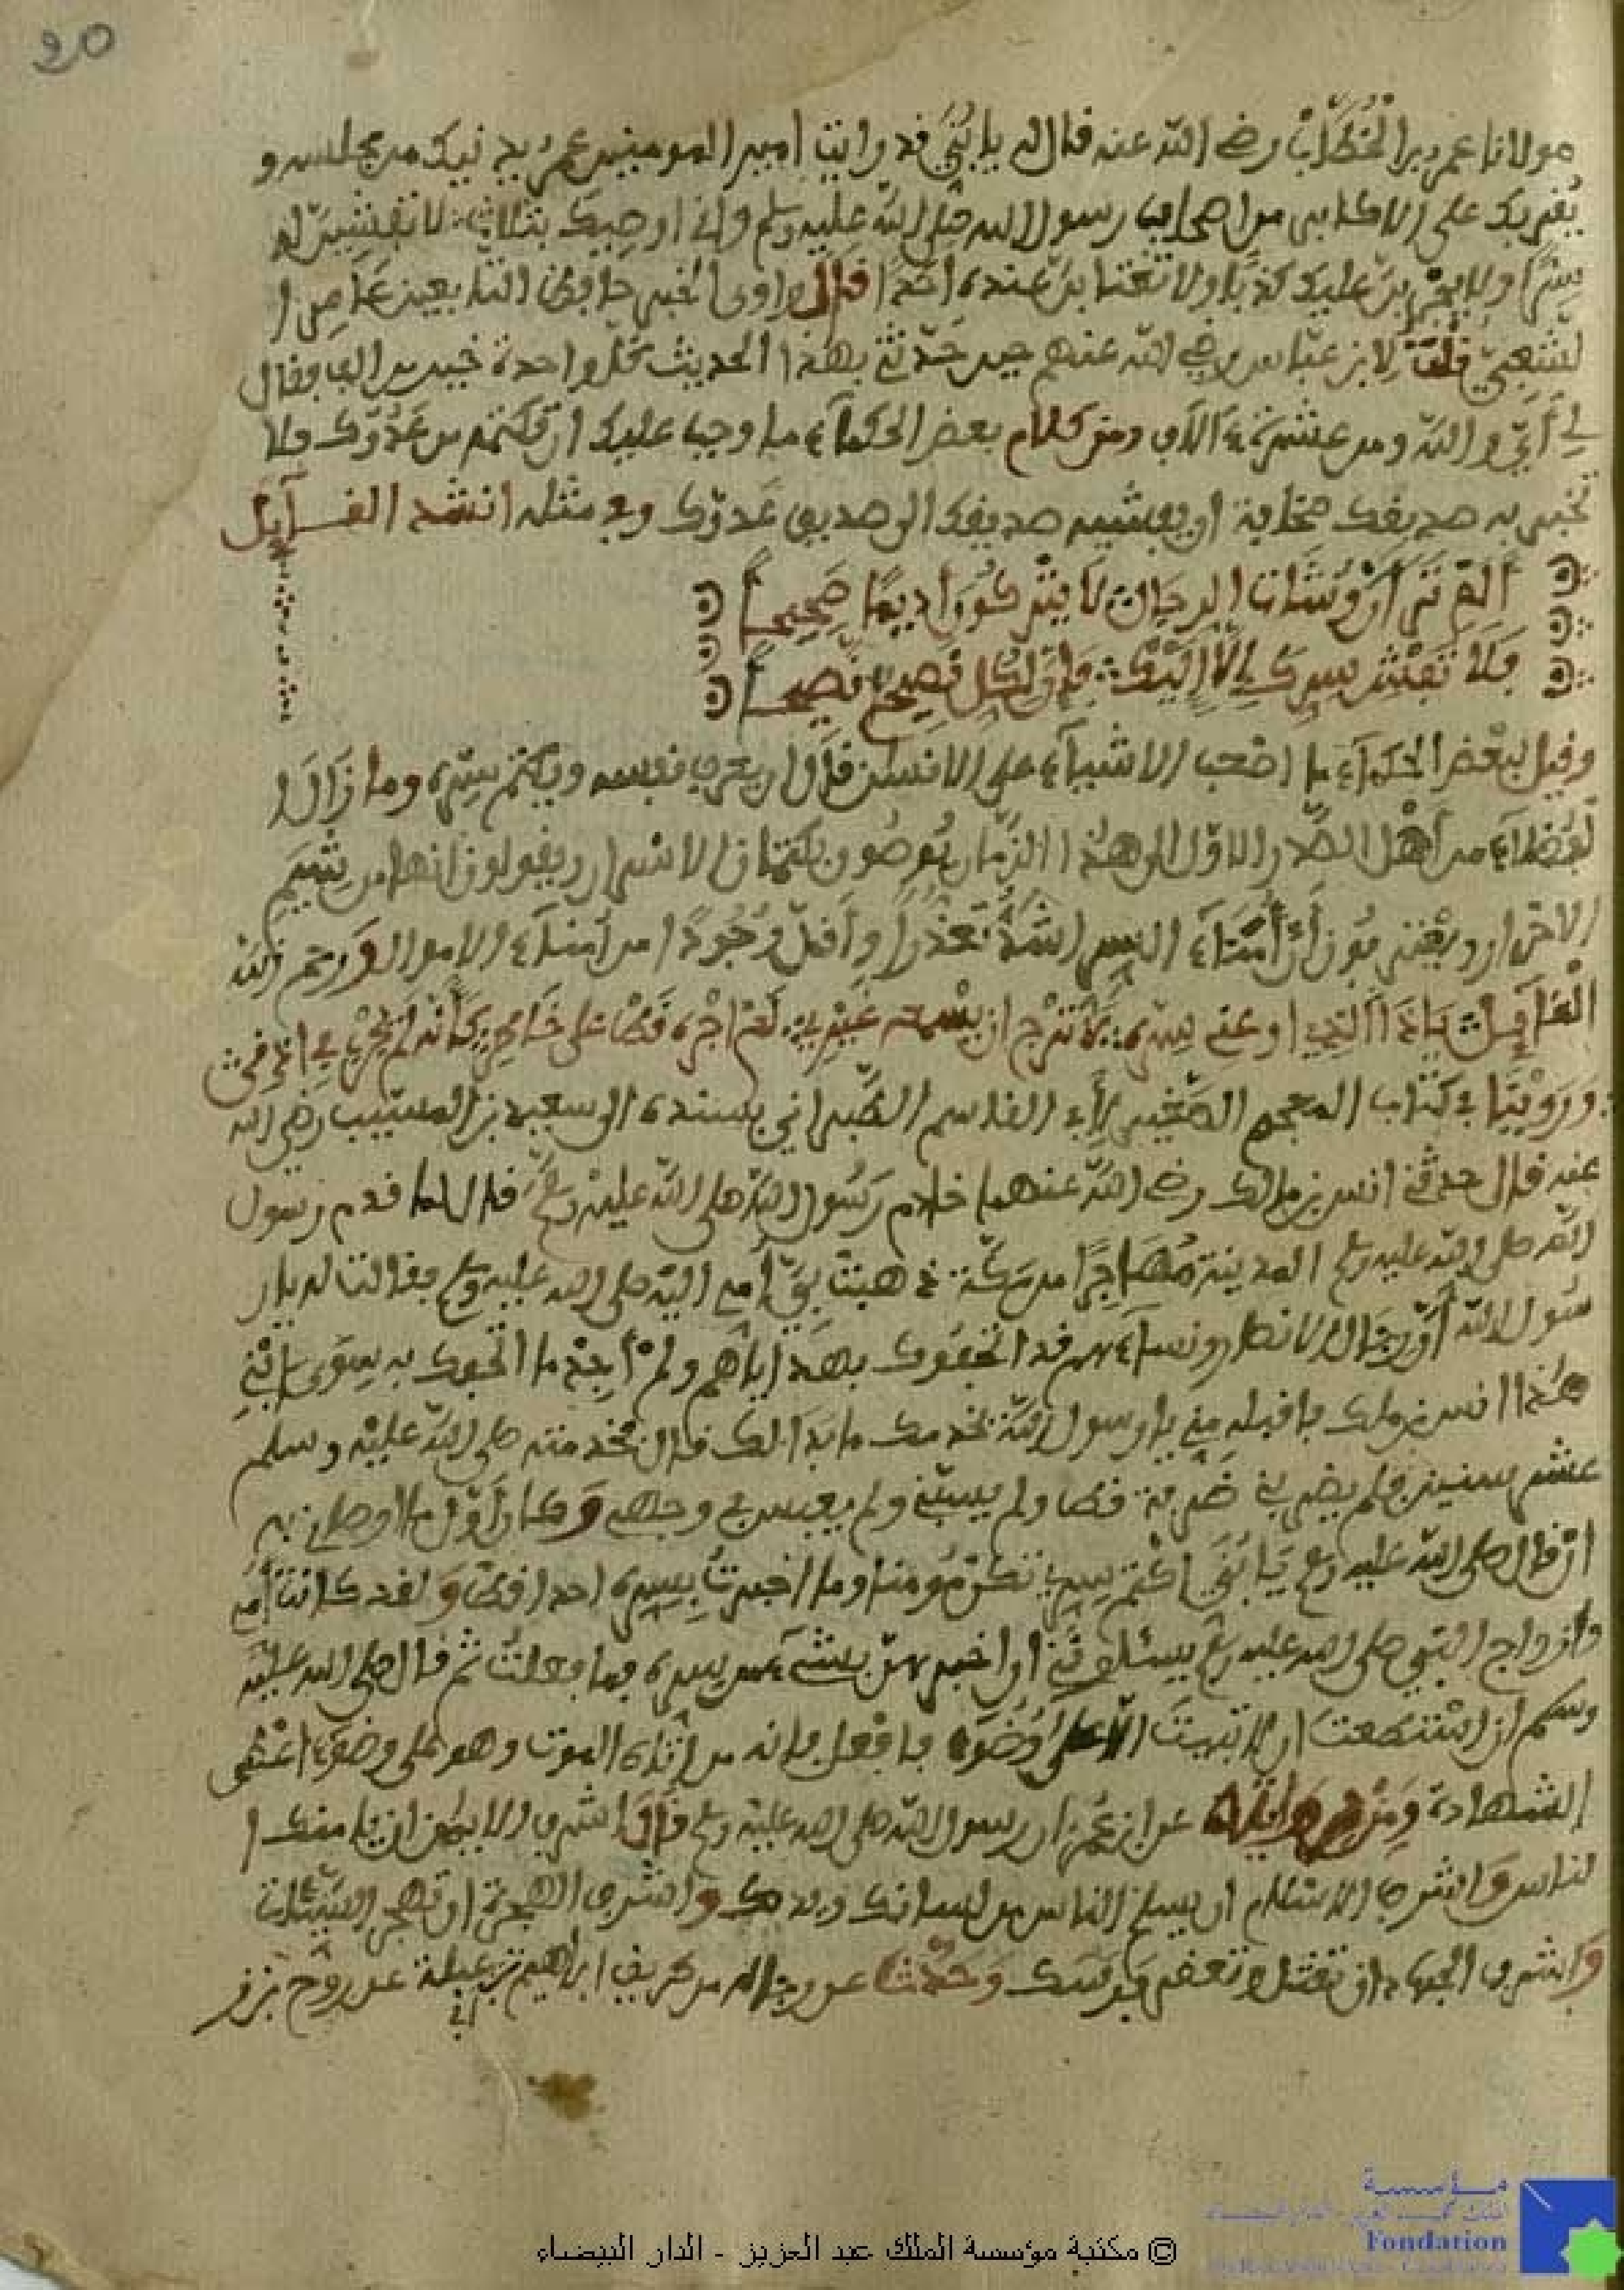 20
مولانا عمر بن الخطاب رضي الله عنه قال له يا بني قد رايت امير المومنين عمر يدنيك من مجلسه و
يقربك على الاكابر من اصحاب رسول الله صلى الله عليه وسلم واني اوصيك بثلاث لا تفشين له
سرا ولا يجربن عليك كذبا ولا تغتابن عنده احدا قال راوي الخبر حافظ التابعين عامر ا
لشعبي قلت لابن عباس رضي الله عنهم حين حدثني بهذا الحديث كل واحدة خير من الف فقال
لي اي والله ومن عشرة ءالاف ومن كلام بعض الحكماء ما وجب عليك ان تكتمه من عدوك فلا
تخبر به صديقك مخافة ان يفشيه صديقك الى صديق عدوك وفي مثله انشد القايل
الم تر ان وشات الرجال لا يتركون اديما صحيحا
فلا تفش سرك الا اليك فان لكل نصيح نصيحا
وقيل لبعض الحكماء ما اصعب الاشياء على الانسان قال ان يعرف نفسه ويكتم سره وما زال ا
لفضلاء من اهل الصدر الاول الى هذا الزمان يوصون بكتمان الاسرار ويقولون انها من شيم
الاحرار ويعتبرون ان امناء السر اشد تعذرا واقل وجودا من امناء الاموال ورحم الله
القايل ياذا الذي اودعني سره لا ترج ان يسمعه غيري لم اجره قط على خاطري كانه لم يجر في اذني
وروينا في كتاب المعجم الصغير لابي القاسم الطبراني بسنده الى سعيد بن المسيب رضي الله
عنه قال حدثني انس بن مالك رضي الله عنهما خادم رسول الله صلى الله عليه وسلم قال لما قدم رسول
الله صلى الله عليه وسلم المدينة مهاجرا من مكة ذهبت بي امي اليه صلى الله عليه وسلم فقالت له يا ر
سول الله ان رجال الانصار ونساءهم قد اتحفوك بهداياهم ولم اجد ما اتحفك به سوى ابني
هذا انس بن ملك فاقبله مني يا رسول الله يخدمك ما بدا لك قال فخدمته صلى الله عليه وسلم
عشر سنين فلم يضربني ضربة قط ولم يسبني ولم يعبس في وجهي وكان اول ما اوصاني به
ان قال صلى الله عليه وسلم يا بني اكتم سري تكن مومنا وما اخبرت بسره احدا قط ولقد كانت امي
وازواج النبي صلى الله عليه وسلم يسئلونني ان اخبرهن بشيء من سره فما فعلت ثم قال صلى الله عليه
وسلم ان استطعت ان لا تبيت الا على وضوء فافعل فانه من اتاه الموت وهو على وضوء اعطي
الشهادة عن ابن عمر ان رسول الله صلى الله عليه وسلم قال اشرف الايمان ان يامنك ا
لناس واشرف الاسلام ان يسلم الناس من لسانك ويدك واشرف الهجرة ان تهجر السيئات
واشرف الجهاد ان تقتل وتعقر فرسك وحدثنا عن رجاله من طريق ابراهيم بن ابي عبلة عن روح بن ز
© مكتبة مؤسسة الملك عبد العزيز - الدار البيضاء
مؤسسة
Fondation